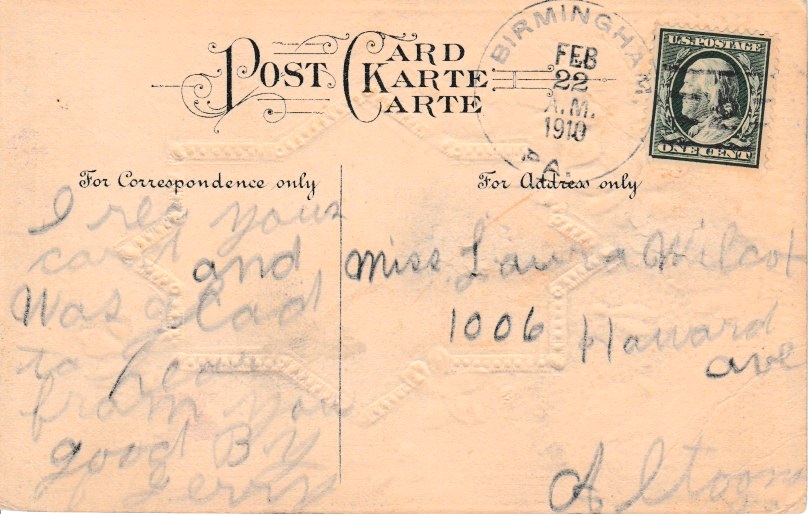 POST CARD
KARTE
CARTE
BIRMINGHAM,
FEB
22
A.M.
1910
PA.
U.S. POSTAGE
ONE CENT
For Correspondence only
For Address only
I rec your
card and
Was glad
to hear
from you
good By
Miss. Laura Wilcot
1006 Howard
ave
Altoona